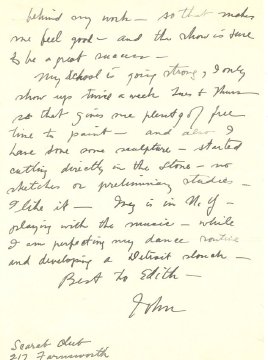 behind any work — so that makes
me feel good — and the show is sure
to be a great success —
My School is going strong, I only
show up twice a week Tues & Thurs
so that gives me plenty of free
time to paint — and also I
have done some sculpture — started
cutting directly in the stone — no
sketches or preliminary studies —
I like it — is in N.Y —
playing with the music — while
I am perfecting my dance routine
and developing a Detroit slouch —
Best to Edith —
John
Scarab Club
217 Farnsworth